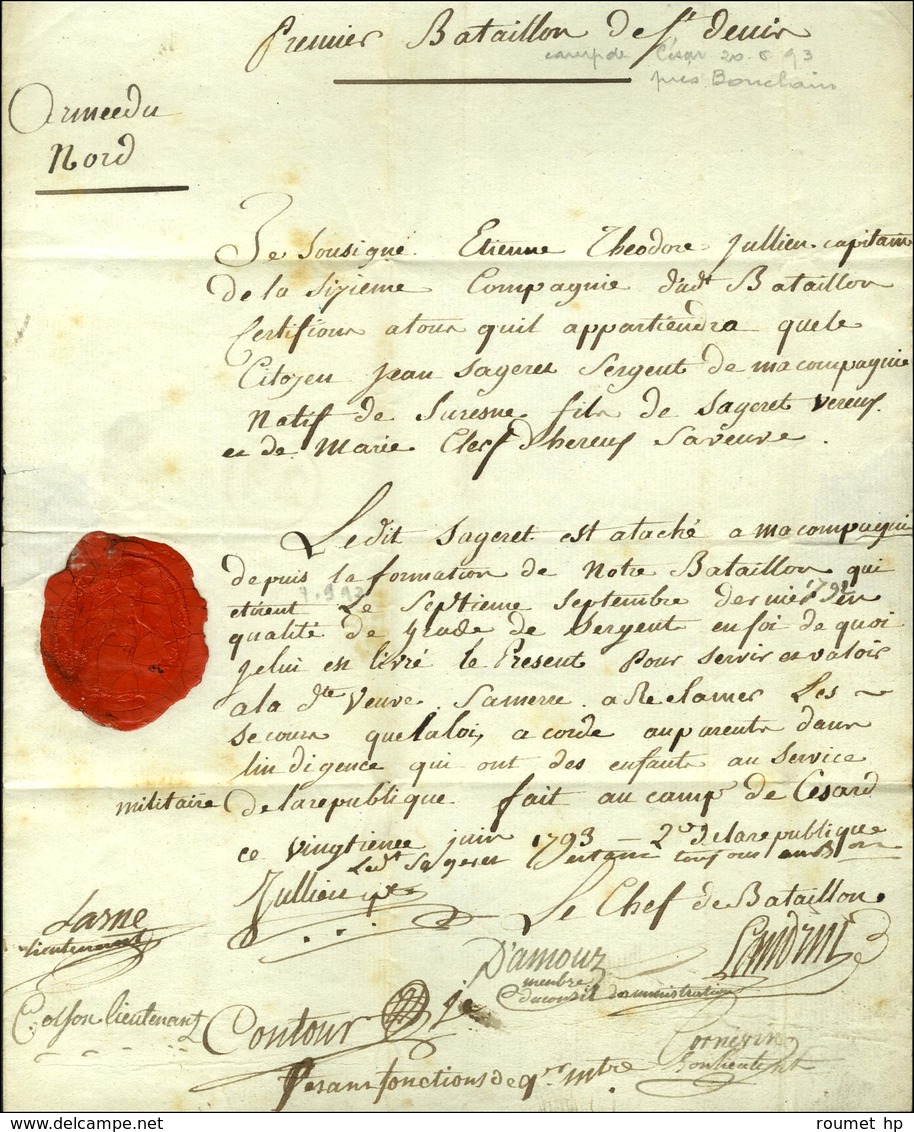 Premier Bataillon de St denis
camp de César 20.6.93
près Bouchain
Armee du
Nord
Je Sousigné Etienne Theodore Jullien capitain
de la Sizieme Compagnie dudt Bataillon
Certifions atous quil appartiendra que le
Citoyen Jean Sageret Sergent de macompagnie
Natif de Suresne fils de Sageret
et de Marie Saveuve.
Ledit Sageret est ataché a macompagnie
depuis la formation de Notre Bataillon qui
7.9.92
etoient Le Septieme Septembre dernier en
qualité de grade de Sergent enfoi de quoi
jelui est livré le Present pour servir et valoir
ala dte Veuve Samerre a Reclamer Les
secours quelaloi acorde auparents dans
lindigence qui ont des enfants au Service
militaire Delarepublique fait au camp de Césard
ce vingtieme juin 1793 - 2e delarepublique
Ledt Sageret toujours au Bon
Jullien
Le Chef de Bataillon
Larne
lieutenant
Landrini
D'amour
membre
duconsil dadministration
Cosson lieutenant
Contour
Cornevin
Soulieutent
fesant fonctions de qer mtre
roumet hp